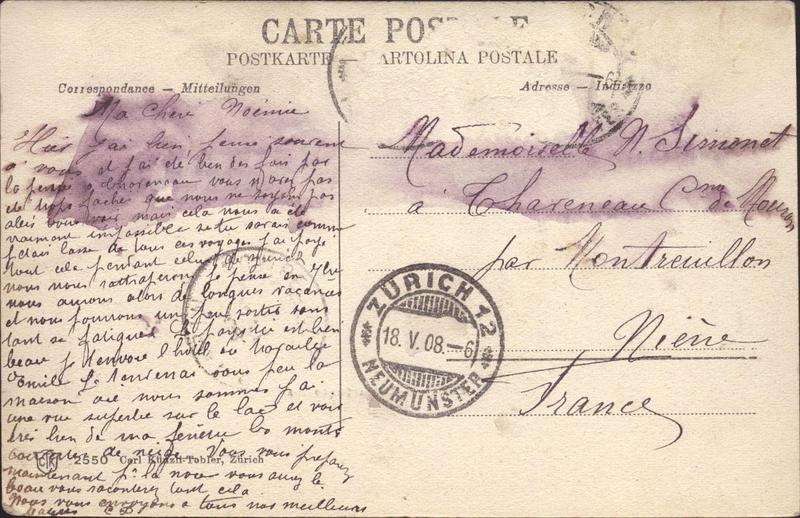 CARTE POSTALE
POSTKARTE — CARTOLINA POSTALE
Correspondance — Mitteilungen
Adresse — Indirizzo
Ma chere Noémie
Hier j'ai bien pensé souvent
a vous et j'ai été bien des fois par
la pensé a vous n'avez pas
été trop faché que nous ne soyons pas
allés vous voir mais cela nous a été
vraiment impossible si tu savais comme
j'étais lasse de tous ces voyages j'ai
tout cela pendant
nous nous rattraperons je pense en
nous aurons alors de longues vacances
et nous pourrons un peu sortir sans
tant se fatiguer Le pays ici est bien
beau je t'envoie l'hôtel où travaille
Emile tu verras un peu la
maison ou nous sommes j'ai
une vue superbe sur le lac et vois
très bien de ma fenêtre les monts
couverts de neige Vous vous préparez
maintenant pr la noce vous aurez le
beau vous raconterez tout cela
Nous vous envoyons a tous nos meilleurs
baisers
CK 2550 Carl Künzli-Tobler, Zürich
Mademoiselle N. Simonet
à Chareneau Cne de
par Montreuillon
Nièvre
France
ZÜRICH 12
18. V. 08. – 6
NEUMÜNSTER